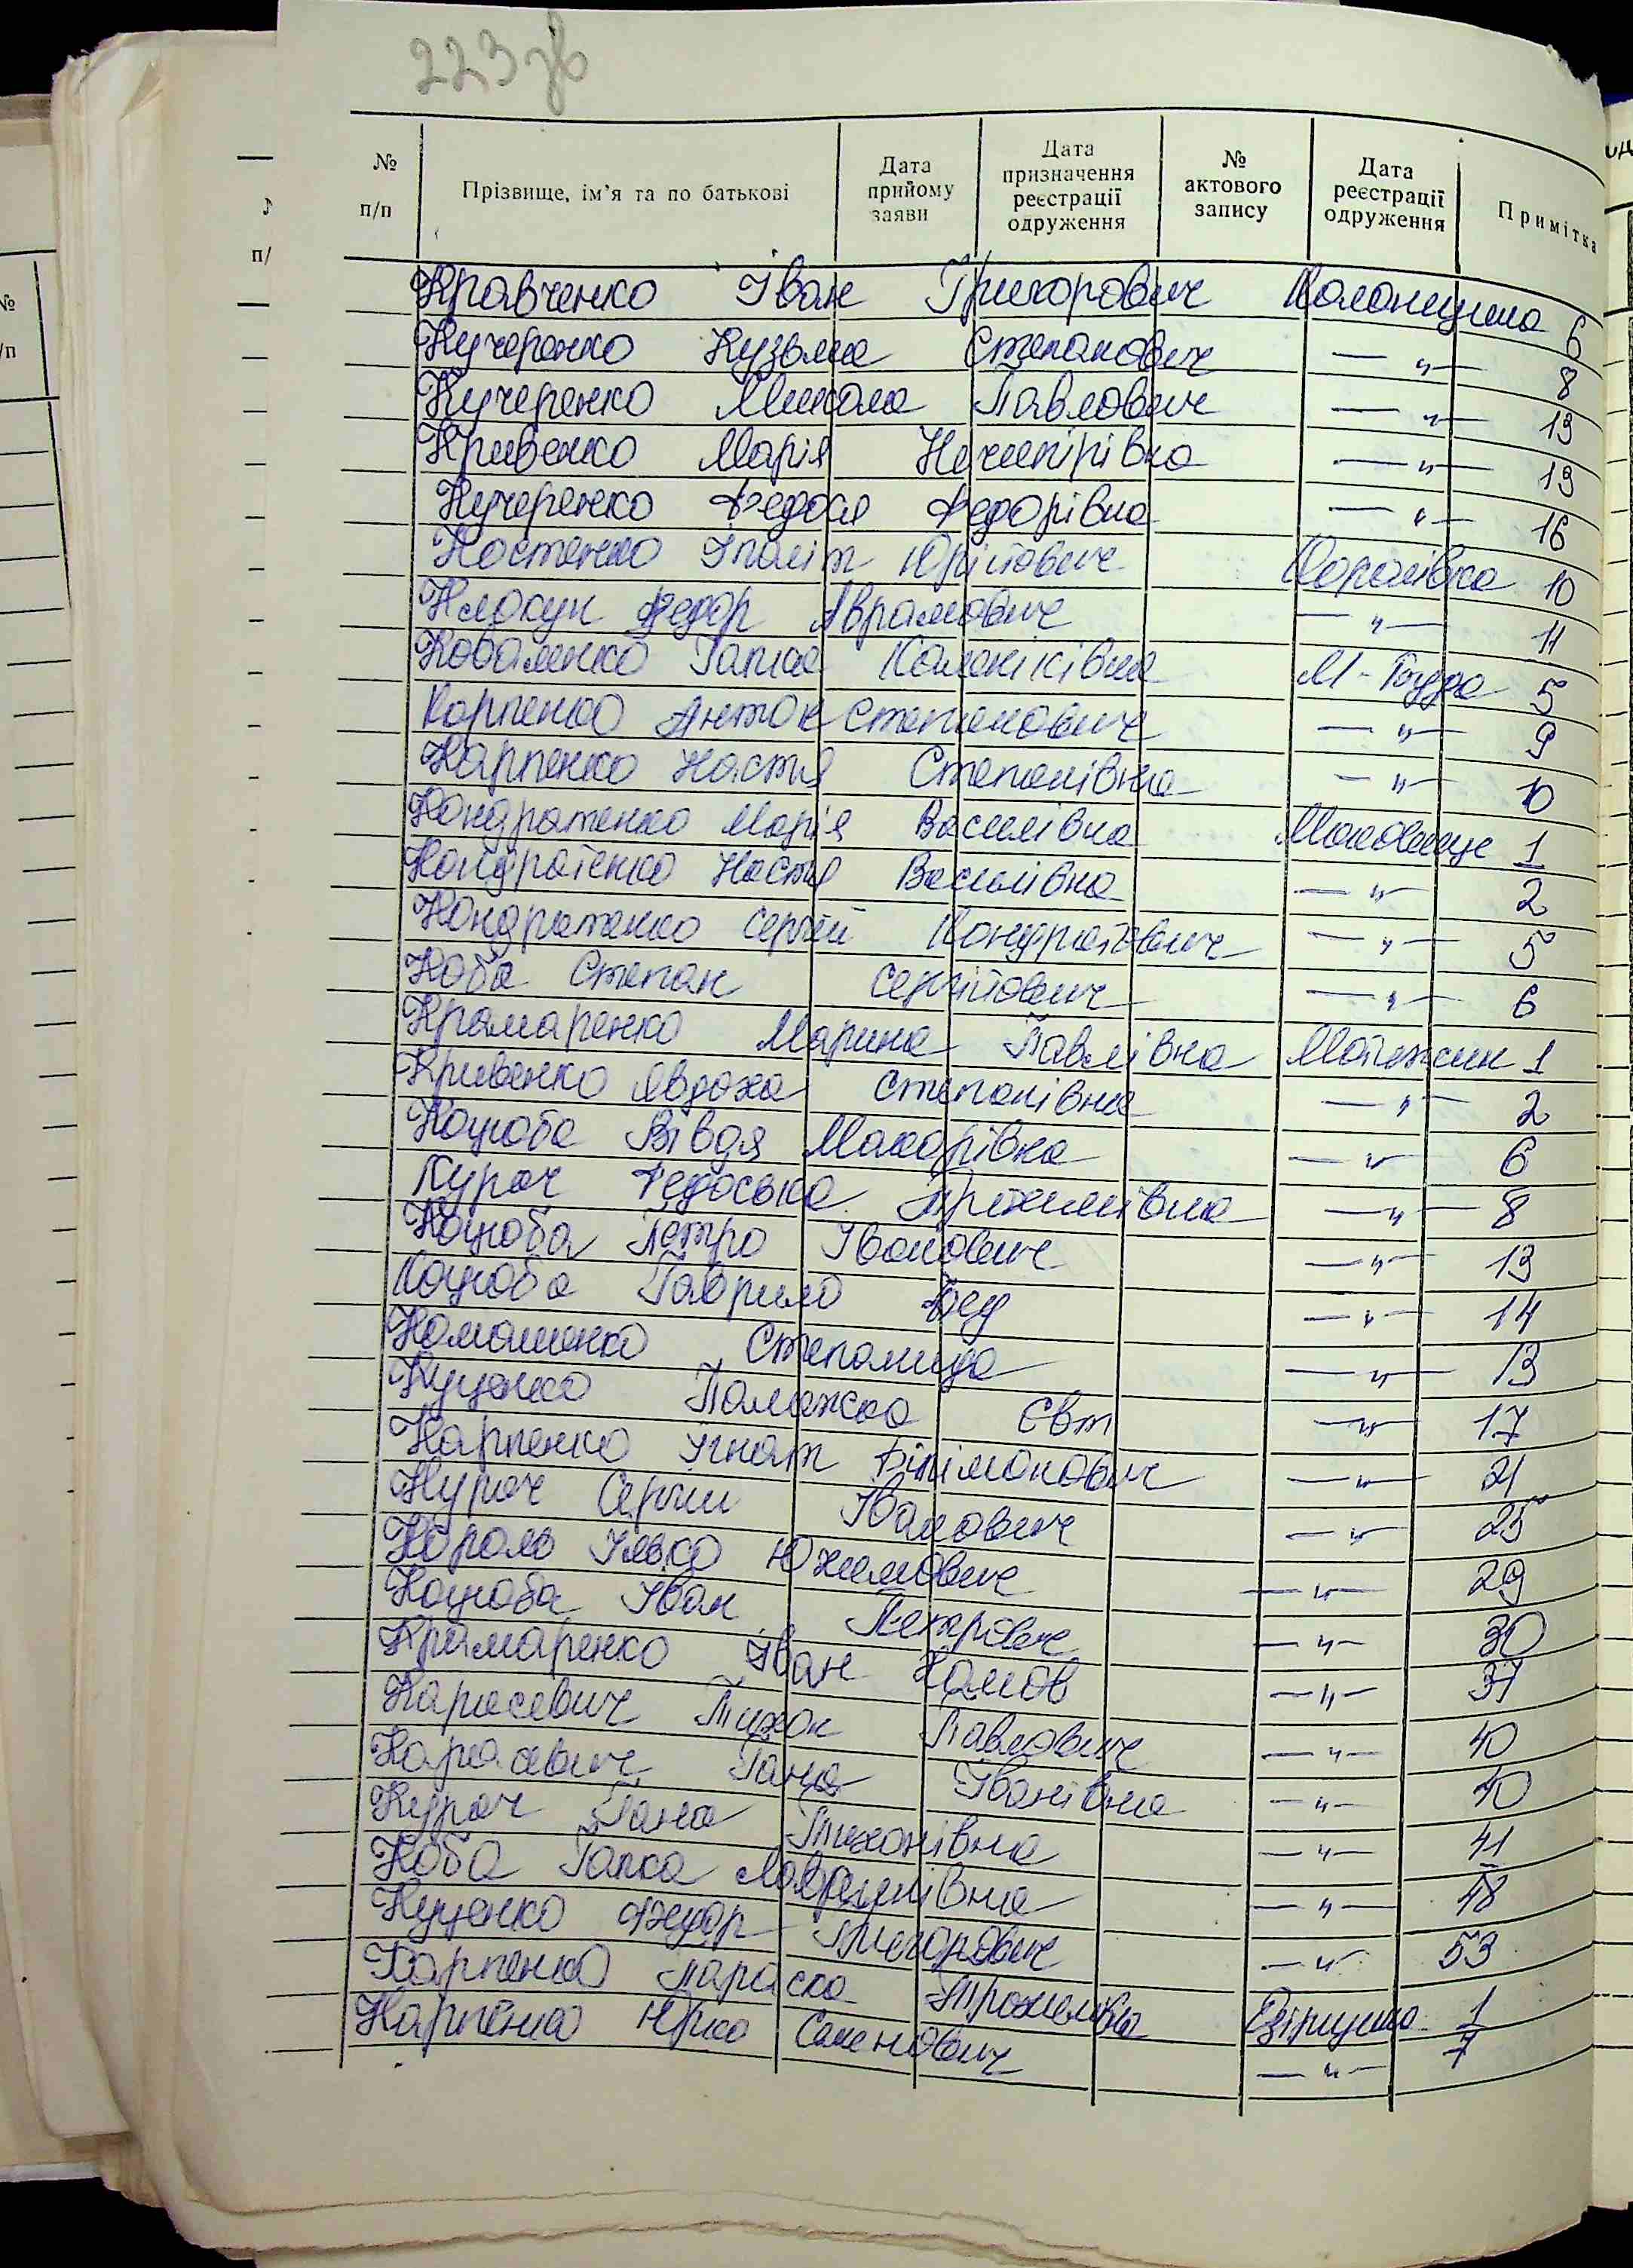 223 зв
№ п/п
Прізвище, ім'я та по батькові
Дата прийому заяви
Дата призначення реєстрації одруження
№ актового запису
Дата реєстрації одруження
Примітка
Кравченко Іван Григорович Колонщина 6
Кучеренко Кузьма Степанович —"— 8
Кучеренко Микола Павлович —"— 13
Кривенко Марія Ничипірівна —"— 13
Кучеренко Федося Федорівна —"— 16
Костенко Іполіт Юрійович Королівка 10
Клокун Федор Аврамович —"— 11
Коваленко Гапка Каленіківна М-Буда 5
Карпенко Антон Степанович —"— 9
Карпенко Настя Степанівна —"— 10
Кондратенко Марія Василівна Маковище 1
Кондратенко Настя Василівна —"— 2
Кондратенко Сергій Кондратович —"— 5
Коба Степан Сергійович —"— 6
Крамаренко Марина Павлівна Мотижин 1
Кривенко Явдоха Степанівна —"— 2
Коцюба Вівдя Макарівна —"— 6
Курач Федоська Трохимівна —"— 8
Коцюба Петро Іванович —"— 13
Коцюба Гаврило Фед —"— 14
Степанида —"— 13
Куценко Палажка Євт —"— 17
Карпенко Ігнат Філімонович —"— 21
Курач Сергій Іванович —"— 25
Король Ілько Юхимович —"— 29
Коцюба Іван Петрович —"— 30
Крамаренко Іван Хомов —"— 37
Карасевич Тихон Павлович —"— 40
Карасевич Ганя Іванівна —"— 40
Курач Гана Тихонівна —"— 41
Коба Гапка —"— 48
Куценко Федор Григорович —"— 53
Карпенко Параска Трохимівна 1
Карпенко Юрко Семенович —"— 7